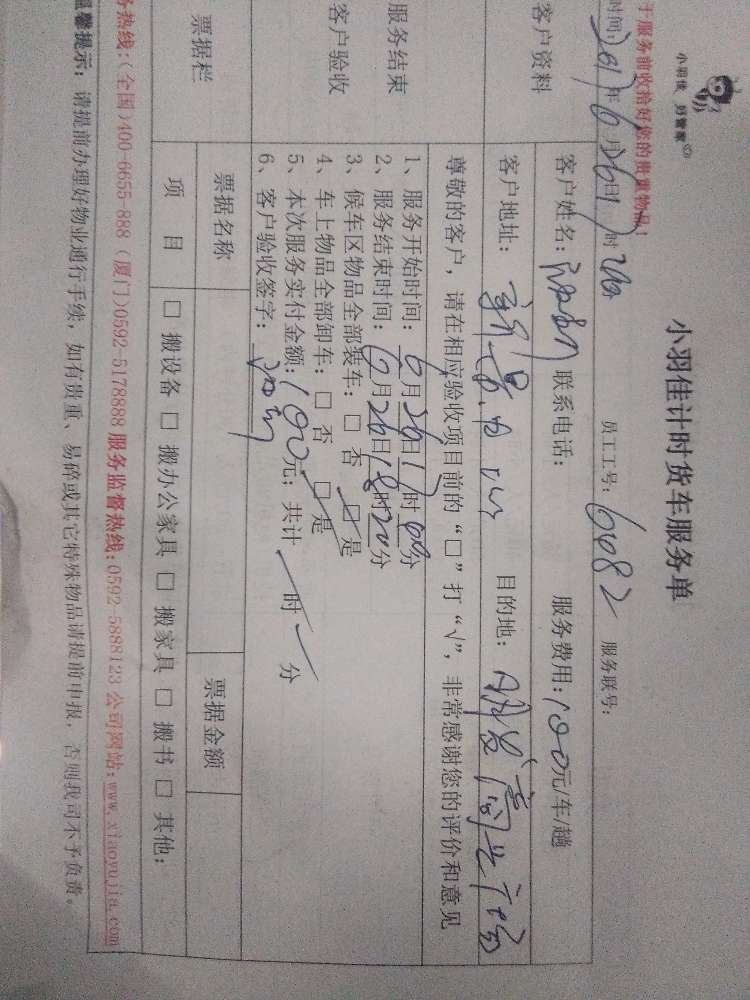 小羽佳 好管家
小羽佳计时货车服务单
于服务前收拾好您的贵重物品:
时间: 2017年6月26日17时 员工工号: 6082 服务联号:
客户资料
客户姓名: 联系电话: 服务费用: 100元/车/趟
客户地址: 目的地:
尊敬的客户,请在相应验收项目前的“□”打“√”,非常感谢您的评价和意见
服务结束
客户验收
1、服务开始时间: 6月26日17时00分
2、服务结束时间: 6月26日18时20分
3、候车区物品全部装车: □ 否 □ 是
4、车上物品全部卸车: □ 否 □ 是
5、本次服务实付金额: 100元; 共计 时 分
6、客户验收签字:
票据栏
票据名称 票据金额
项 目 □ 搬设备 □ 搬办公家具 □ 搬家具 □ 搬书 □ 其他:
务热线:(全国)400-6655-888 (厦门)0592-5178888 服务监督热线:0592-5888123 公司网站:www.xiaoyujia.com
温馨提示: 请提前办理好物业通行手续,如有贵重、易碎或其它特殊物品请提前申报,否则我司不予负责。